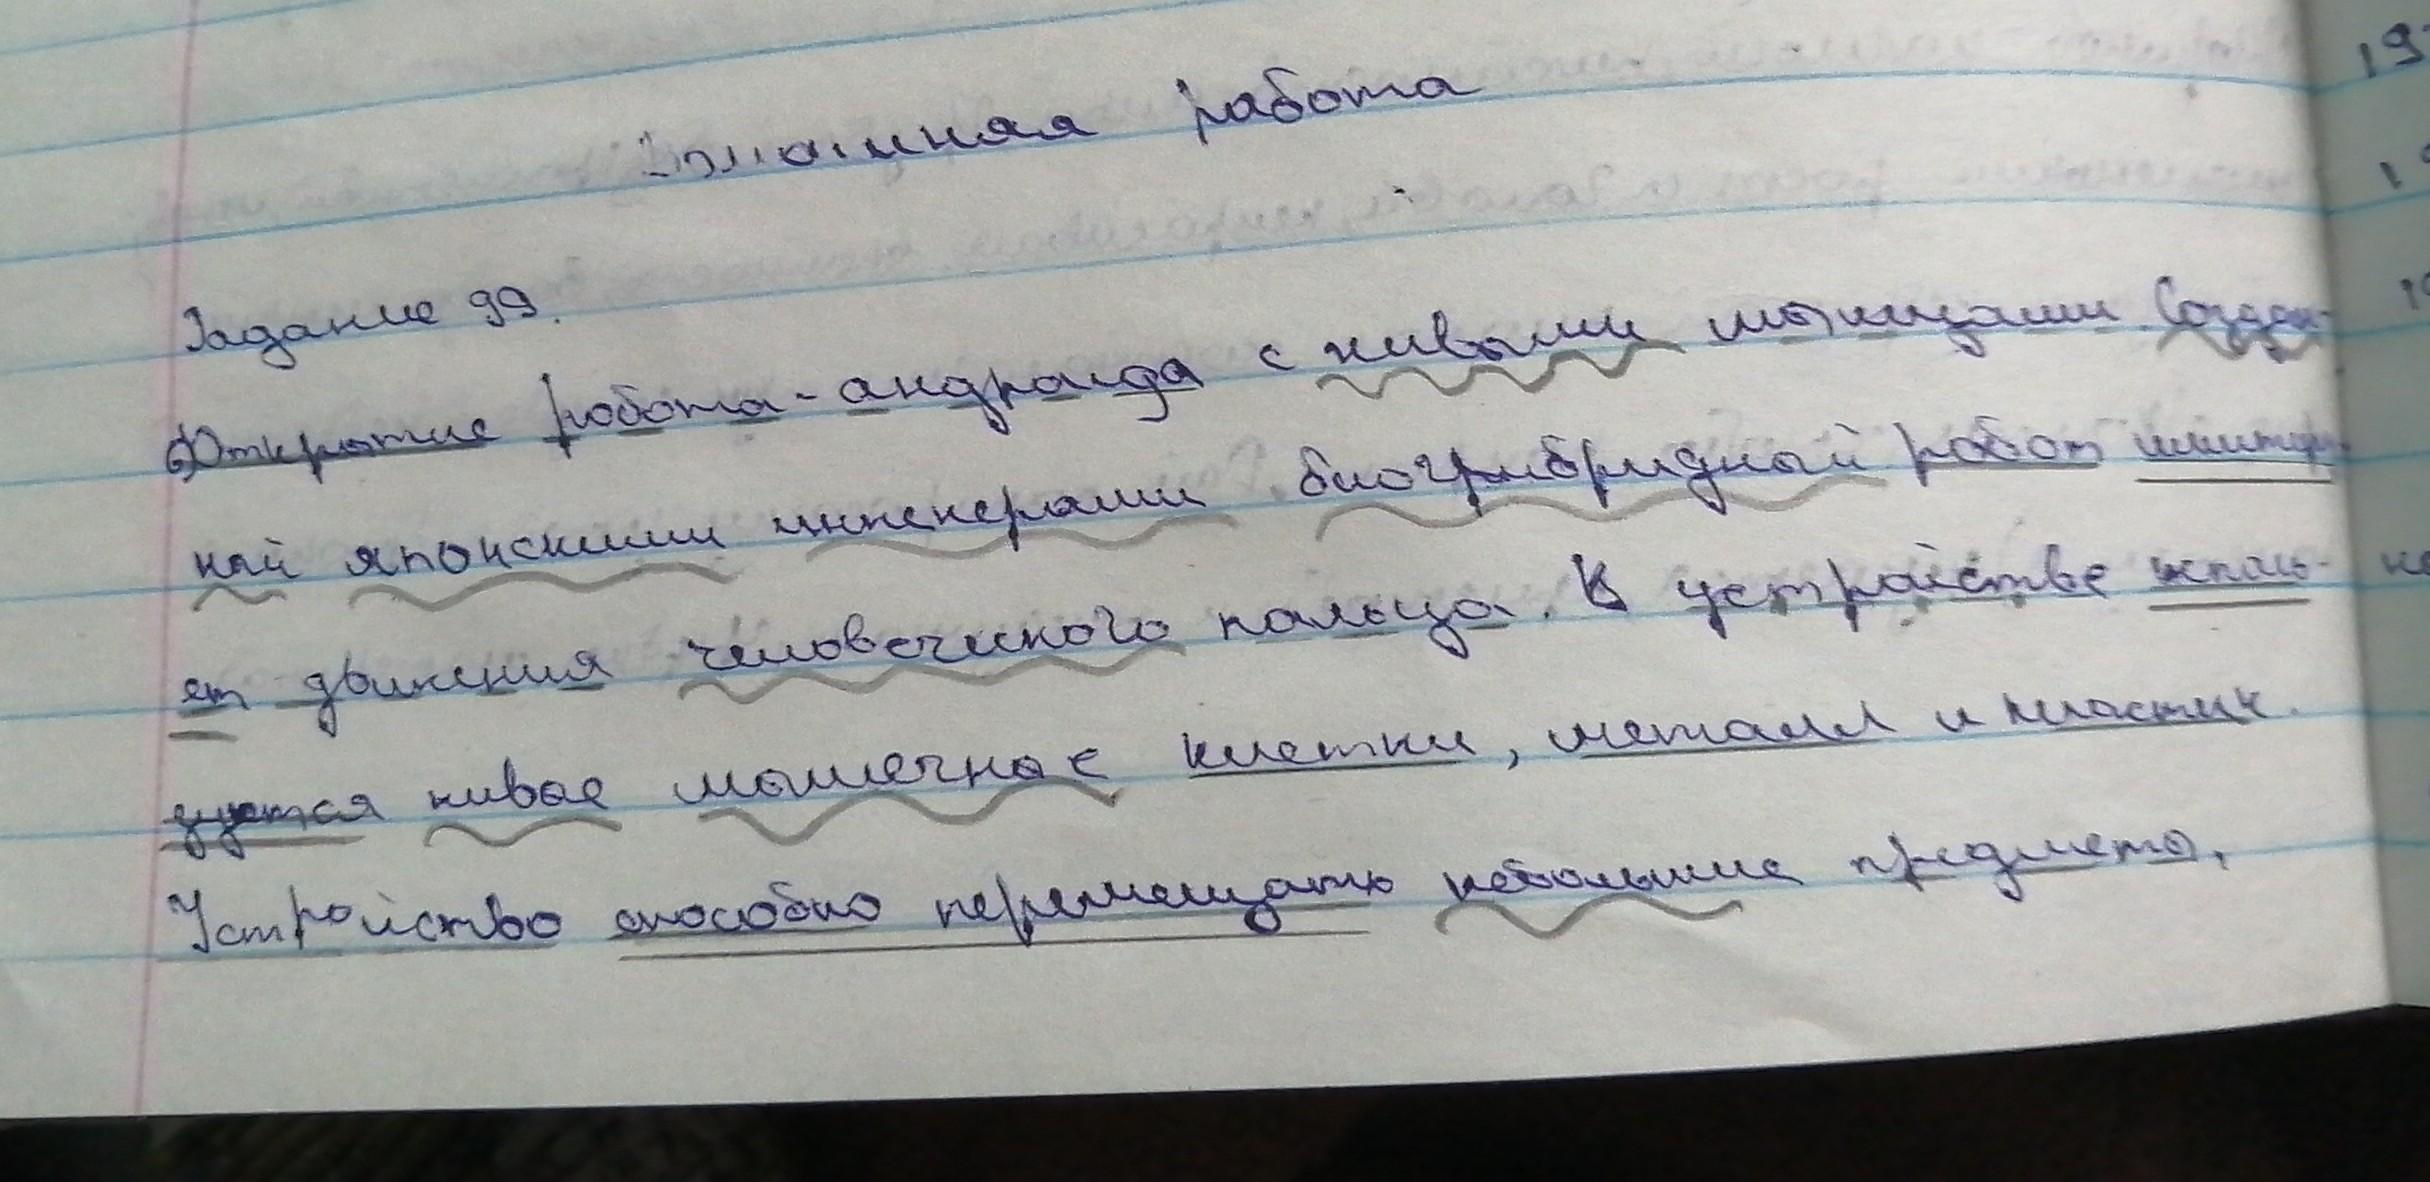 Домашняя работа
Задание 99.
Открытие робота-андроида с живыми мышцами Создан-
ный японскими инженерами биогрибридный робот имитиру-
ет движения человеческого пальца. В устройстве исполь-
зуются живые мышечные клетки, металл и пластик.
Устройство способно перемещать небольшие предметы.